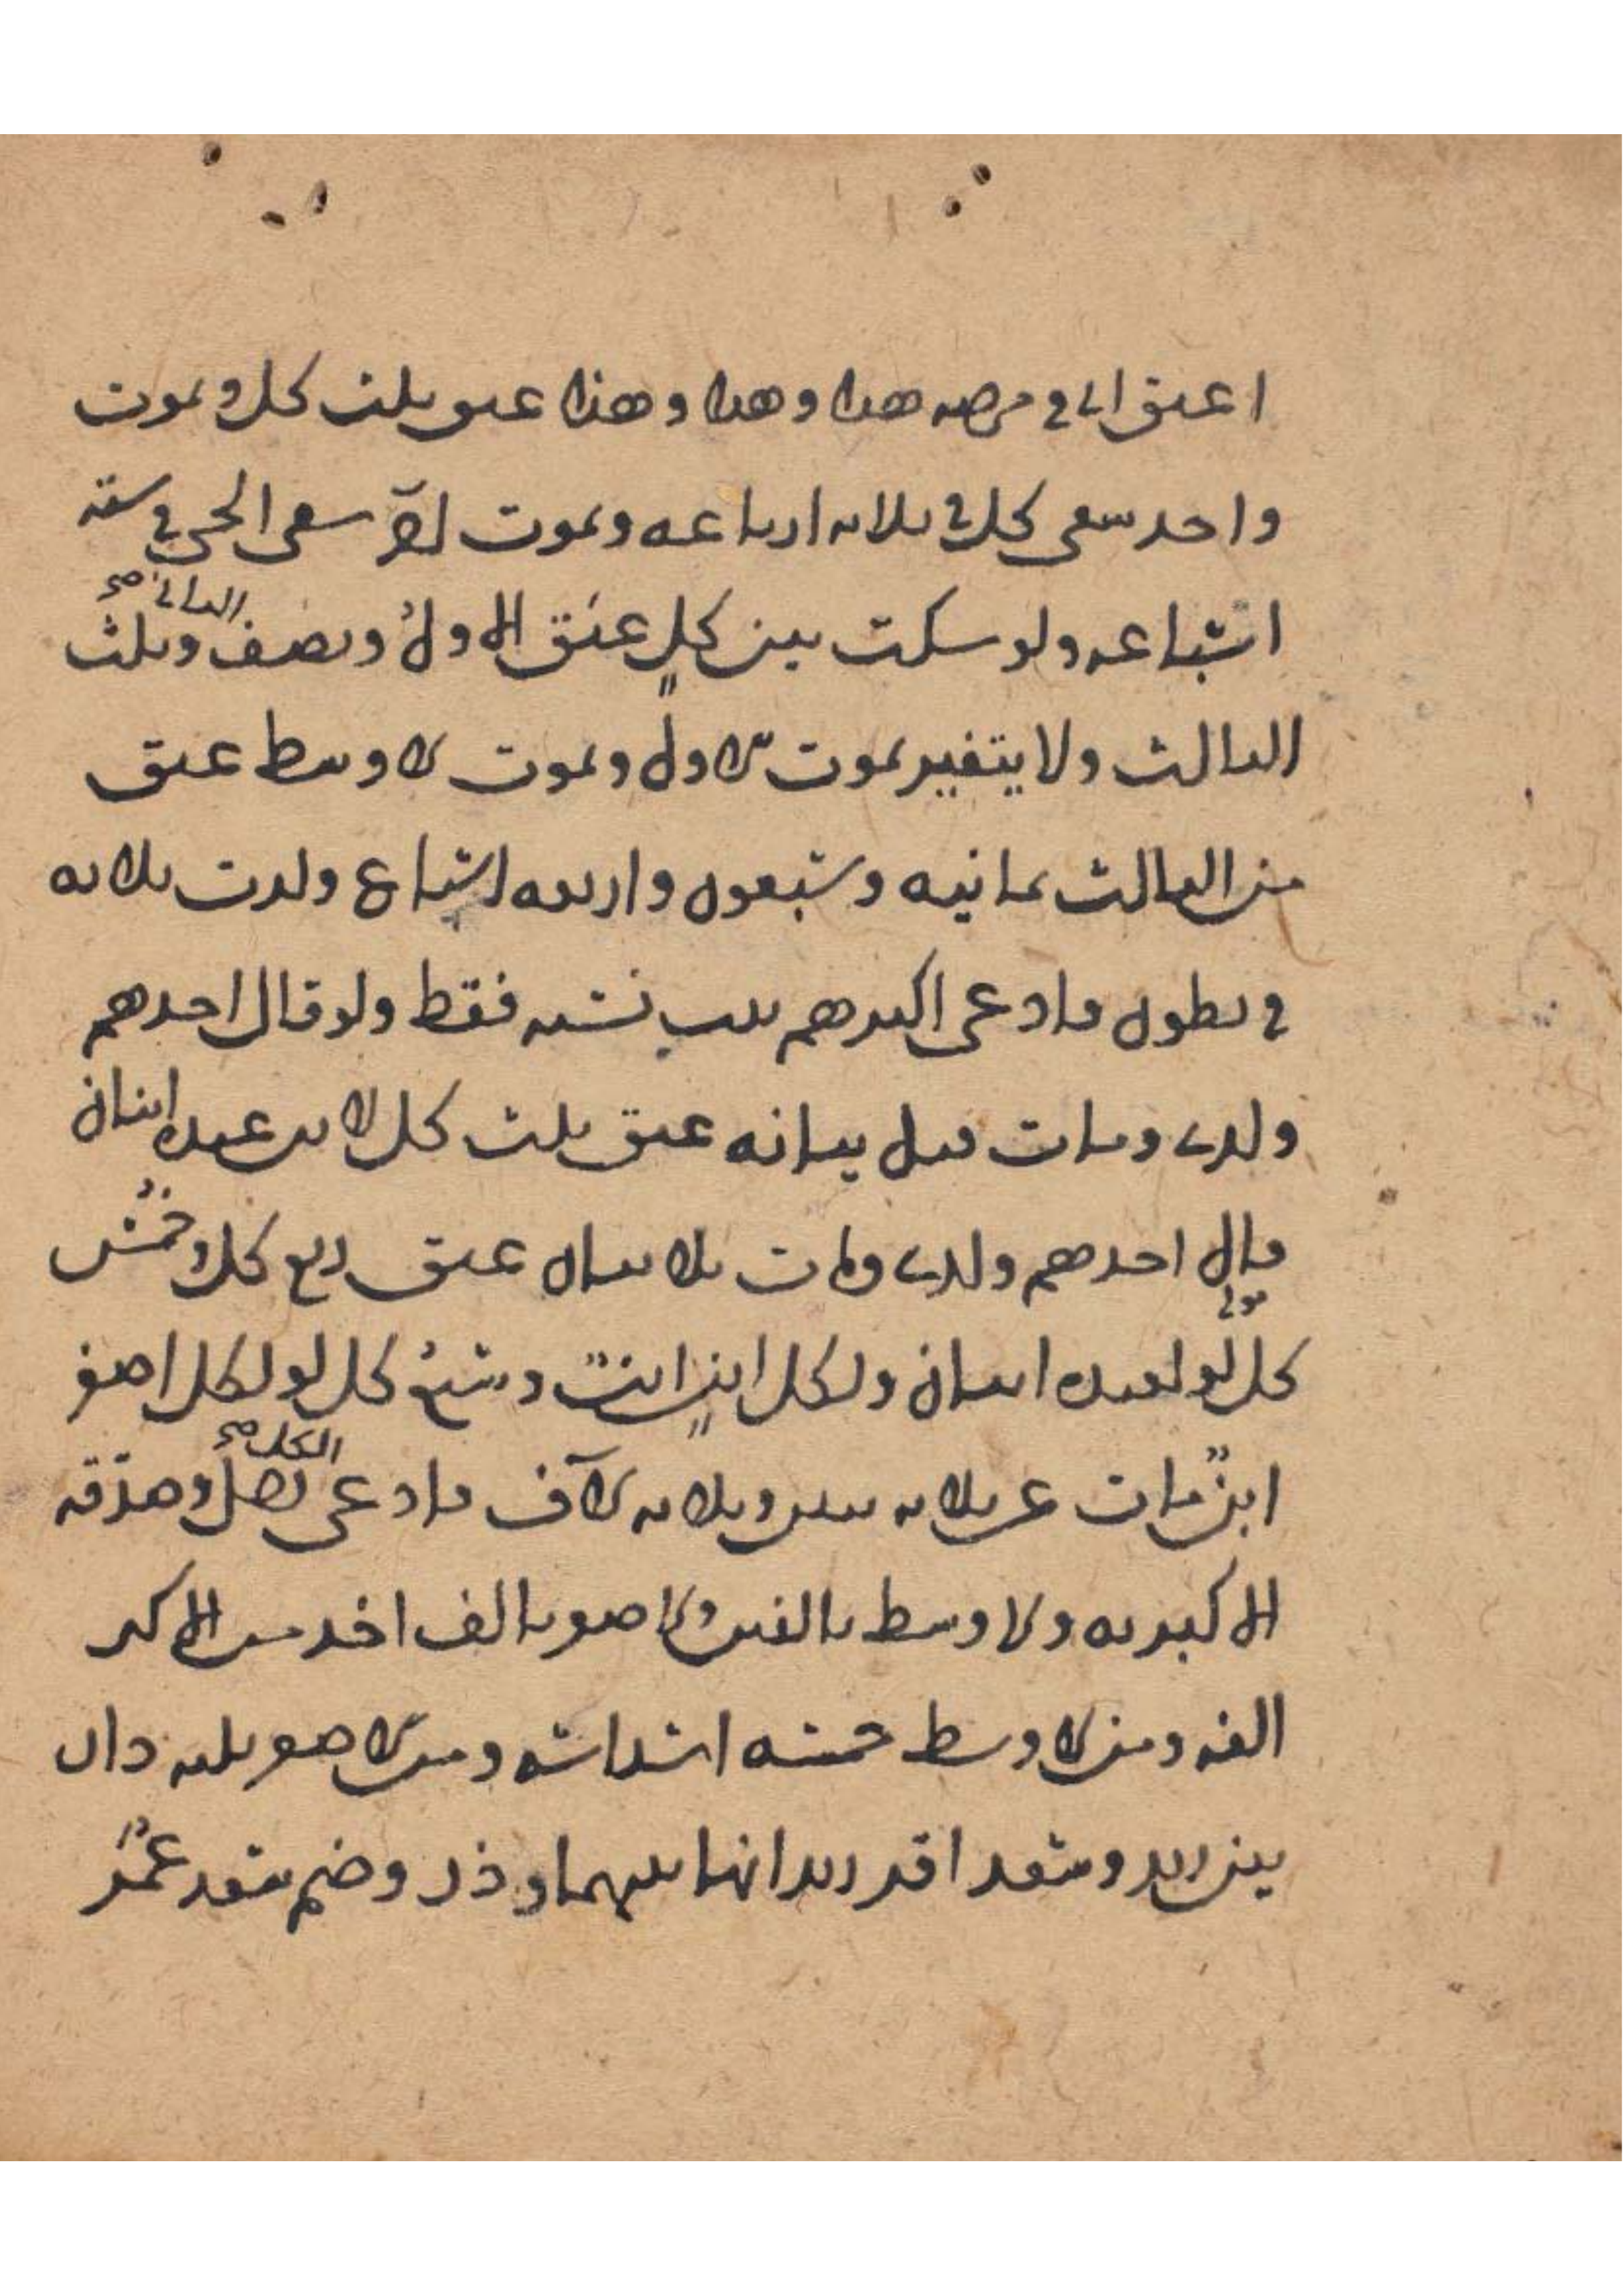 اعتق ابي في مرضه هذا وهذا وهذا عتق ثلث كل وبموت
واحد سعى كل في ثلاثة ارباعه وبموت اخر سعى الحي في ستة
اسباعه ولو سكت بين كلٍ عتق الاول ونصف الثاني صح وثلث
الثالث ولا يتغير بموت الاول وبموت الاوسط عتق
من الثالث ثمانية وسبعون واربعة اسباع ولدت ثلاثة
في بطون فادعى اكبرهم يثبت نسبه فقط ولو قال احدهم
ولدي ومات قبل بيانه عتق ثلث كل لابن عبده ابنان
قال احدهم ولدي ومات بلا بيان عتق ربع كل وخمس
كل لو لعبده ابنان ولكل ابنٍ ابن وتسع كل لو لكل اصغر
ابن مات عن ثلاثة بنين وثلاثة الاف فادعى رجل الكل صح وصدقه
الاكبر به والاوسط بالفين والاصغر بالف اخذ من الاكبر
الفه ومن الاوسط خمسة اسداسه ومن الاصغر ثلثه دار
بين زيد وسعد اقر زيد انها بينهما و وضم سعد